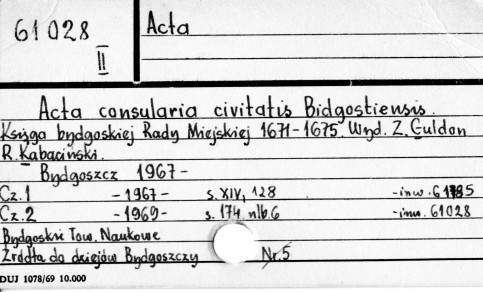 61028
II
Acta
Acta consularia civitatis Bidgostiensis.
Księga bydgoskiej Rady Miejskiej 1671-1675. Wyd. Z. Guldon
R. Kabaciński.
Bydgoszcz 1967-
Cz. 1 -1967- s. XIV, 128 -inw. 61185
Cz. 2 -1969- s. 174 nlb. 6 -inw. 61028
Bydgoskie Tow. Naukowe
Źródła do dziejów Bydgoszczy Nr. 5
DUJ 1078/69 10.000